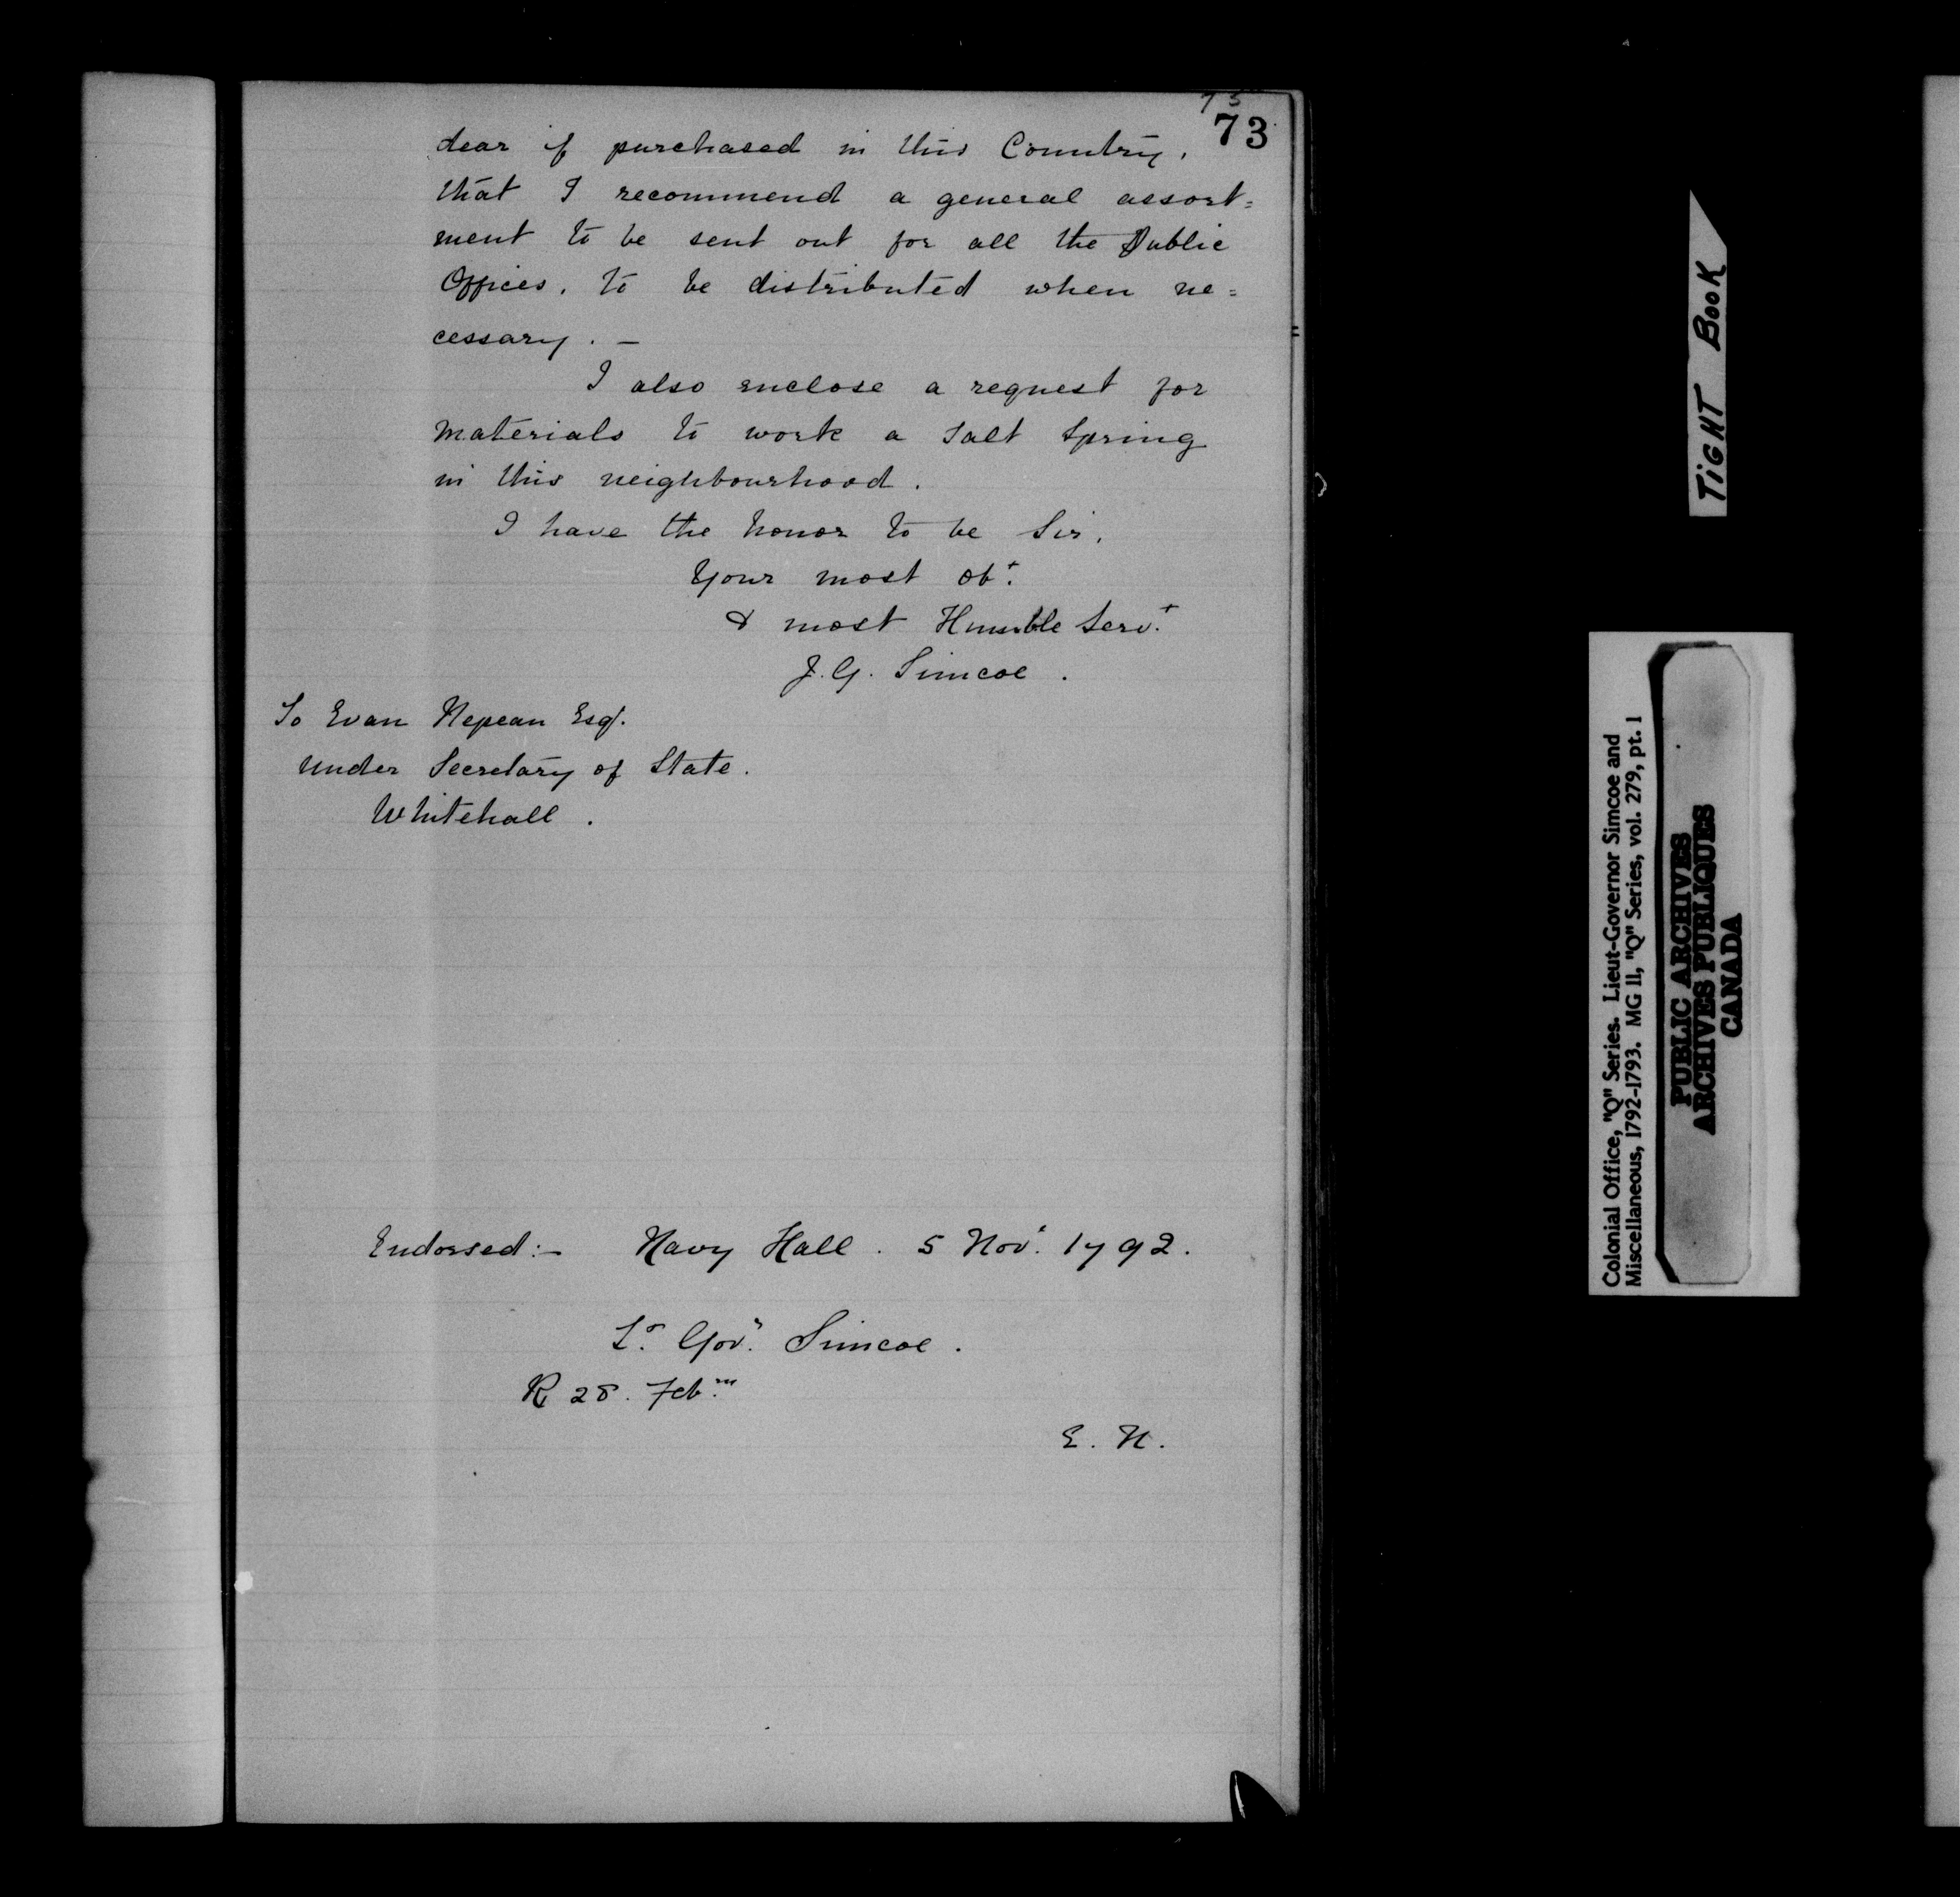 75
73
dear if purchased in this Country,
that I recommend a general assort=
ment to be sent out for all the Public
Offices, to be distributed when ne=
cessary. —
I also enclose a request for
Materials to work a Salt Spring
in this neighbourhood.
I have the honor to be Sir,
Your most obt.
& most Humble Servt.
J. G. Simcoe.
To Evan Nepean Esqr.
Under Secretary of State.
Whitehall.
Endorsed:— Navy Hall. 5 Novr. 1792.
Lt. Govr. Simcoe.
R 28. Feb
E. N.
TIGHT BOOK
Colonial Office, "Q" Series. Lieut-Governor Simcoe and
Miscellaneous, 1792-1793. MG 11, "Q" Series, vol. 279, pt. 1
PUBLIC ARCHIVES
ARCHIVES PUBLIQUES
CANADA